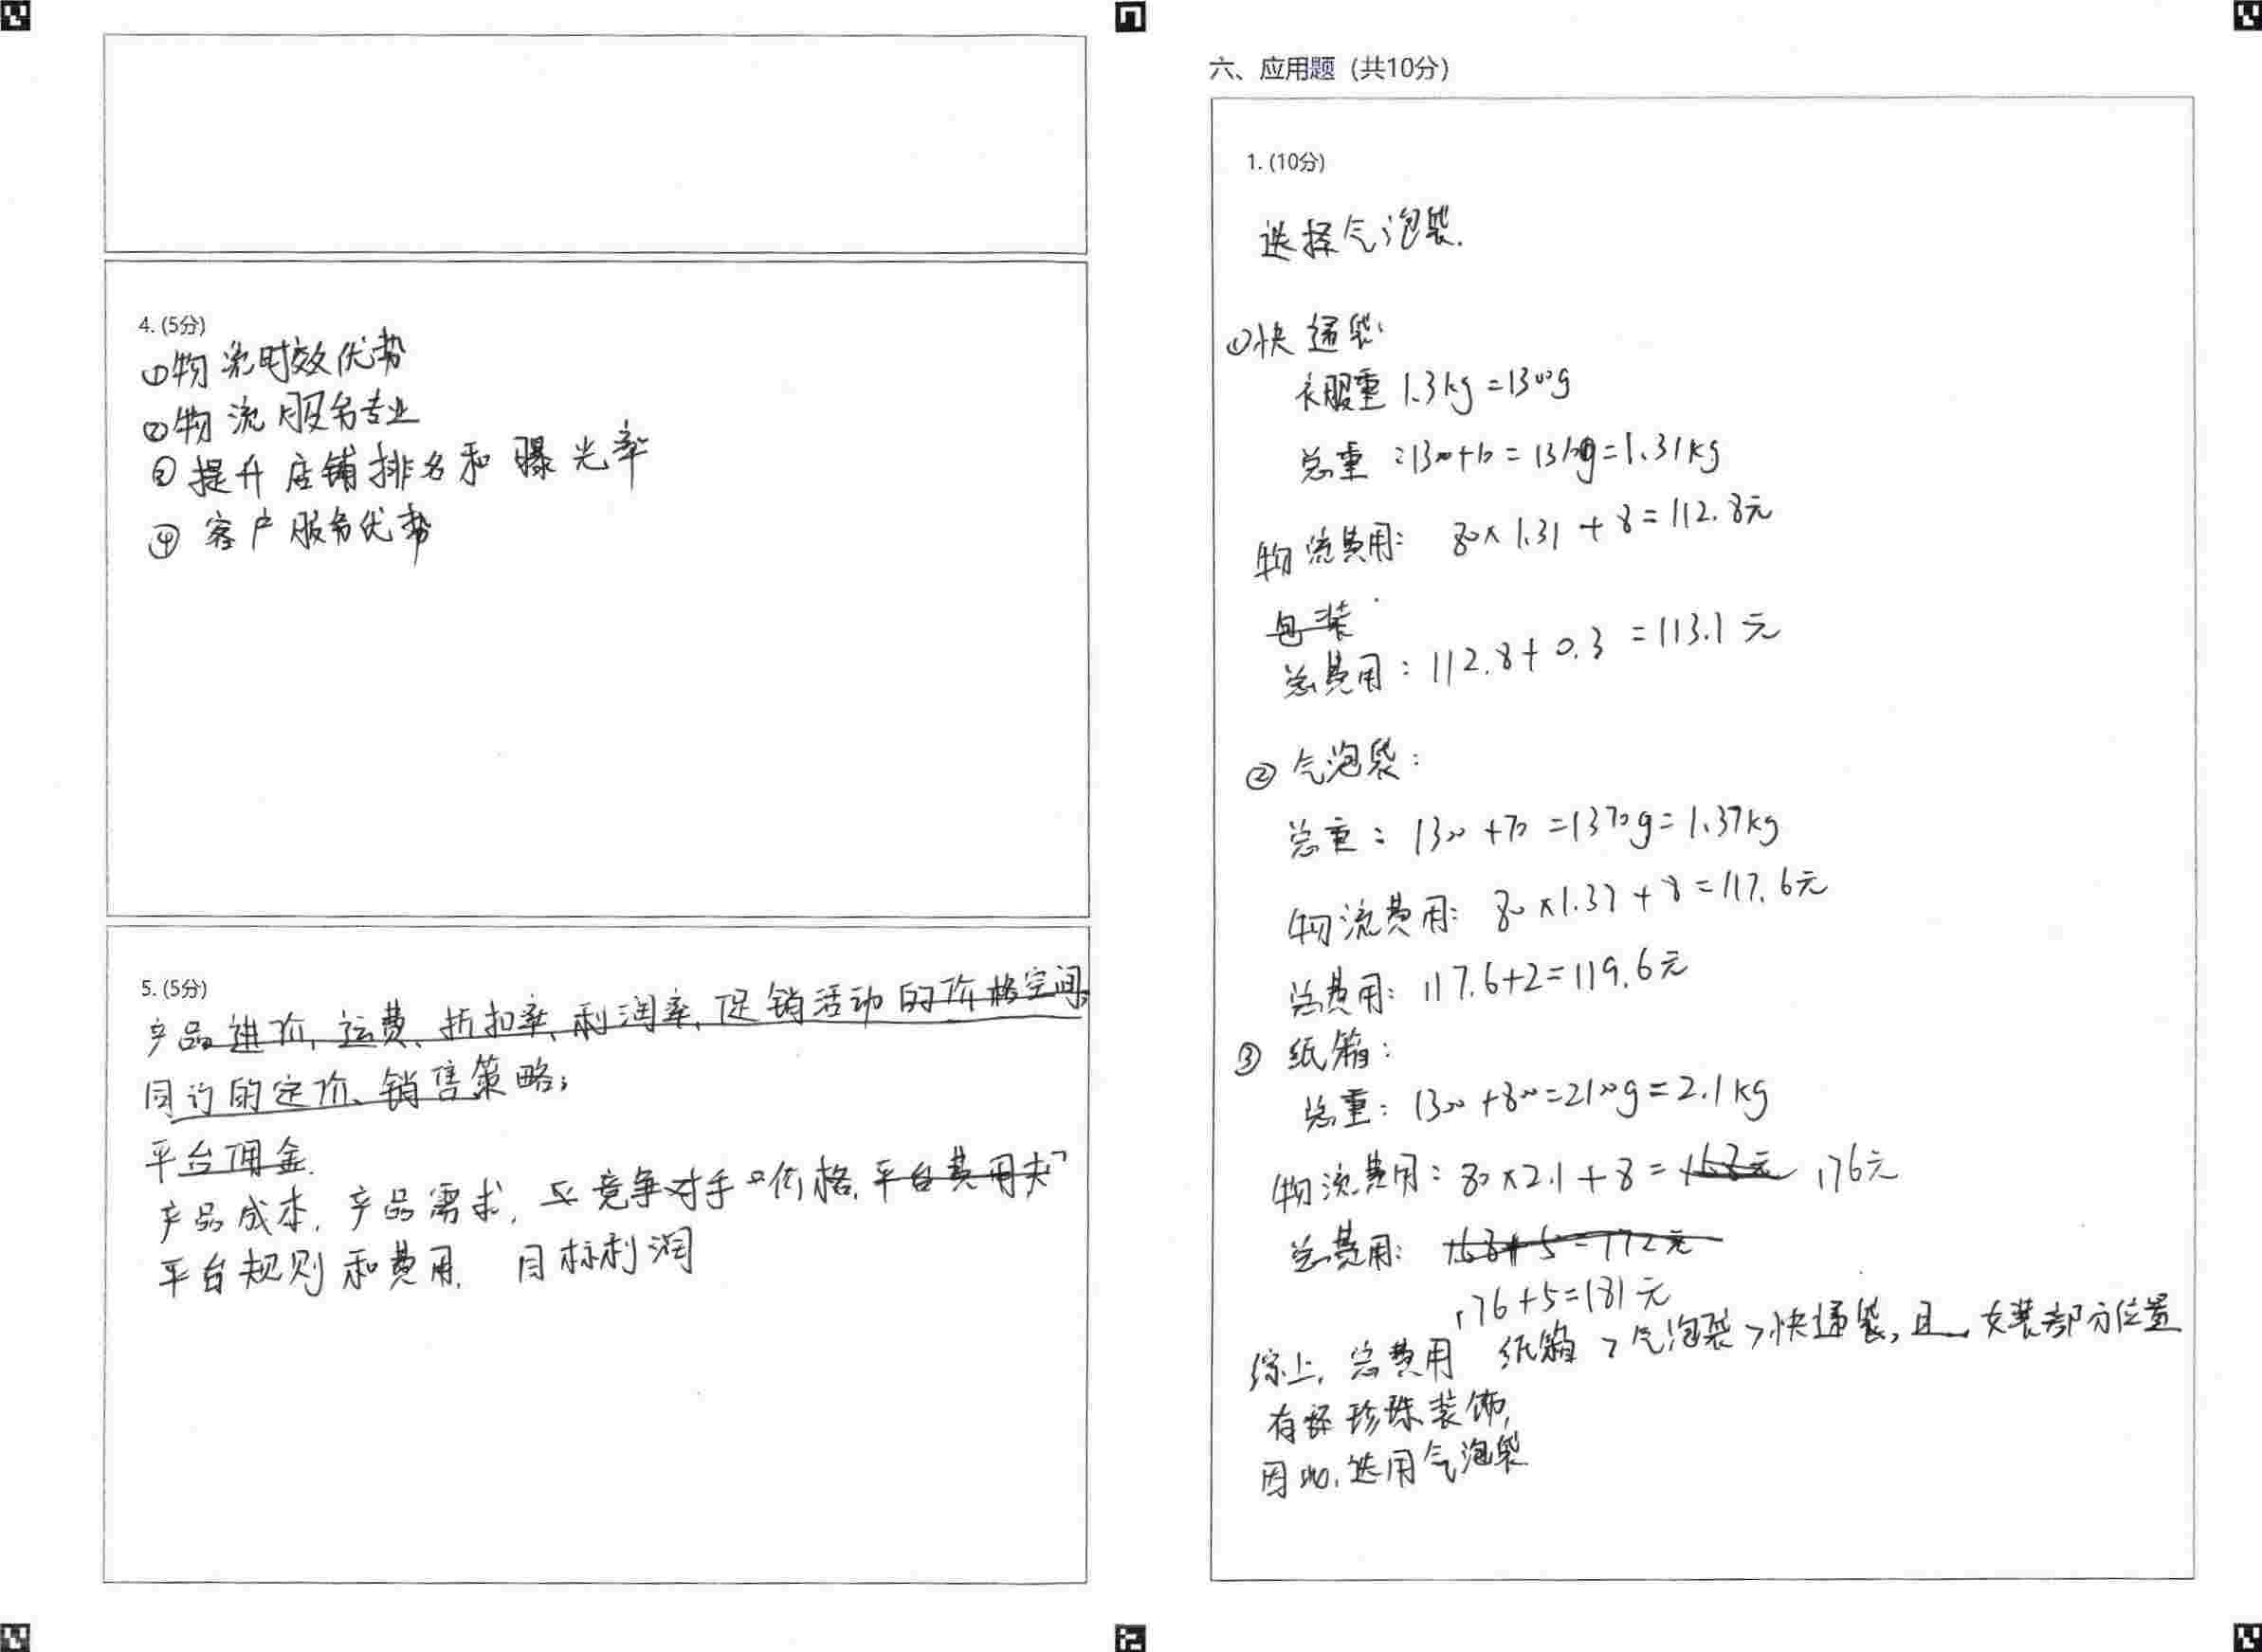 4. (5分)
①物流时效优势
②物流服务专业
③提升店铺排名和曝光率
④客户服务优势
5. (5分)
产品进价、运费、折扣率、利润率、促销活动的价格空间;
同行的定价、销售策略;
平台佣金.
产品成本, 产品需求, 竞争对手价格, 平台费用
平台规则和费用, 目标利润
六、应用题 (共10分)
1. (10分)
选择气泡袋.
①快递袋:
衣服重 1.3kg=1300g
总重:1300+10=1310g=1.31kg
物流费用: 80×1.31+8=112.8元
包装
总费用: 112.8+0.3=113.1元
②气泡袋:
总重: 1300+70=1370g=1.37kg
物流费用: 80×1.37+8=117.6元
总费用: 117.6+2=119.6元
③纸箱:
总重: 1300+800=2100g=2.1kg
物流费用: 80×2.1+8=168元 176元
总费用: 168+5=172元
176+5=181元
综上, 总费用 纸箱>气泡袋>快递袋, 且, 女装部分位置
有 珍珠装饰,
因此, 选用气泡袋